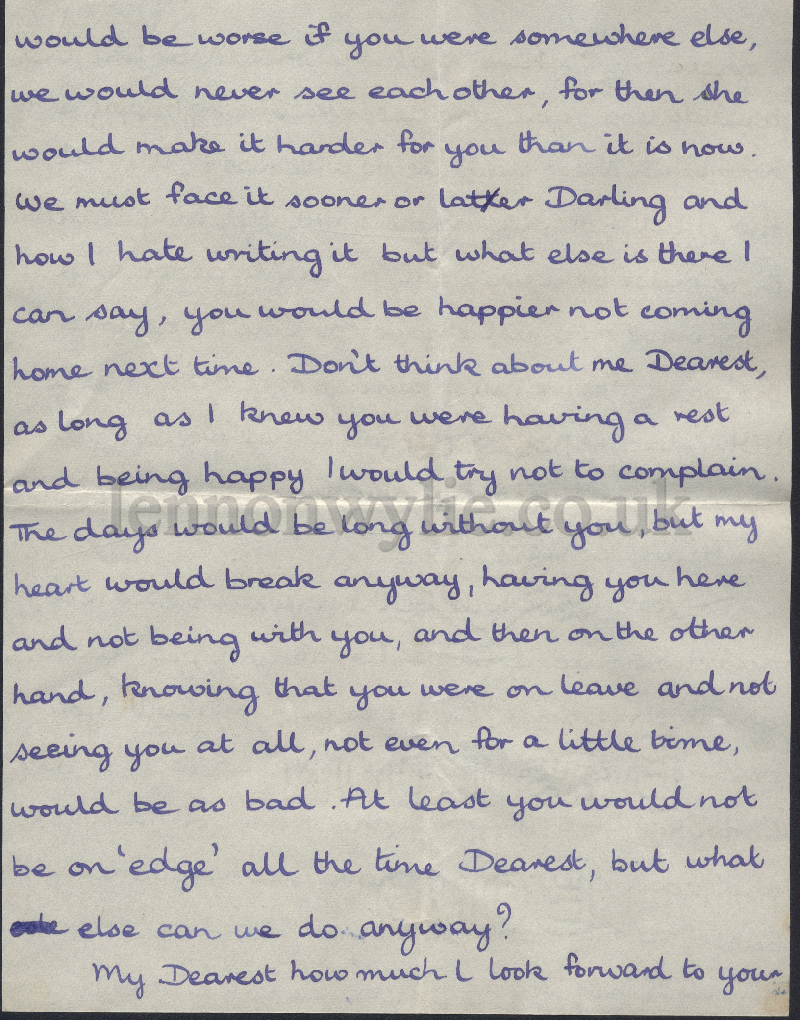 would be worse if you were somewhere else,
we would never see each other, for then she
would make it harder for you than it is now.
We must face it sooner or later Darling and
how I hate writing it but what else is there I
can say, you would be happier not coming
home next time. Don't think about me Dearest,
as long as I knew you were having a rest
and being happy I would try not to complain.
lennonwylie.co.uk
The days would be long without you, but my
heart would break anyway, having you here
and not being with you, and then on the other
hand, knowing that you were on leave and not
seeing you at all, not even for a little time,
would be as bad. At least you would not
be on 'edge' all the time Dearest, but what
else can we do anyway?
My Dearest how much I look forward to your